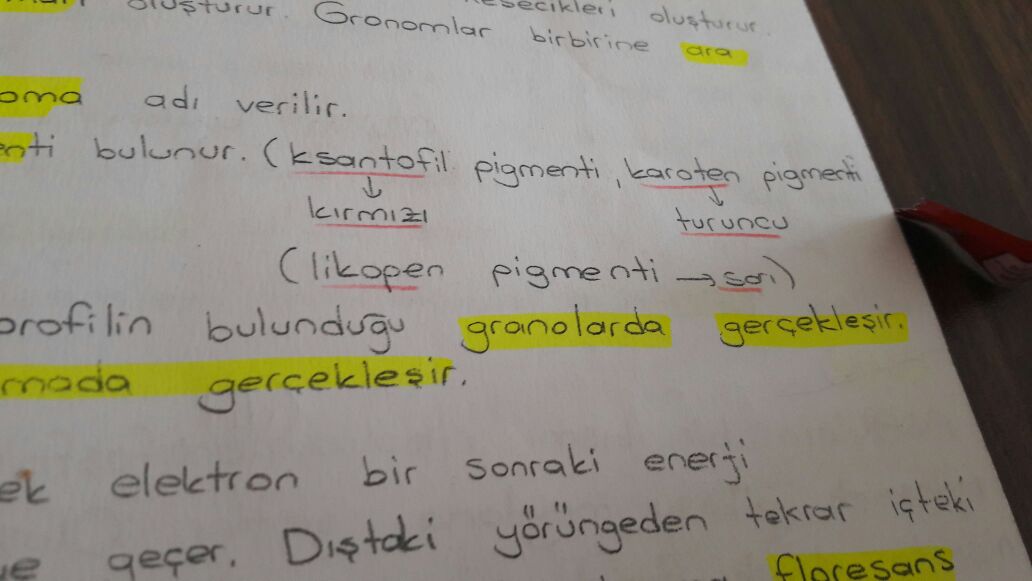 oluşturur. kesecikleri oluşturur.
Gronomlar birbirine ara
oma adı verilir.
enti bulunur. (ksantofil pigmenti, karoten pigmenti
↓ ↓
kırmızı turuncu
(likopen pigmenti → sarı)
orofilin bulunduğu granolarda gerçekleşir.
mada gerçekleşir.
ek elektron bir sonraki enerji
ye geçer. Dıştaki yörüngeden tekrar içteki
floresans